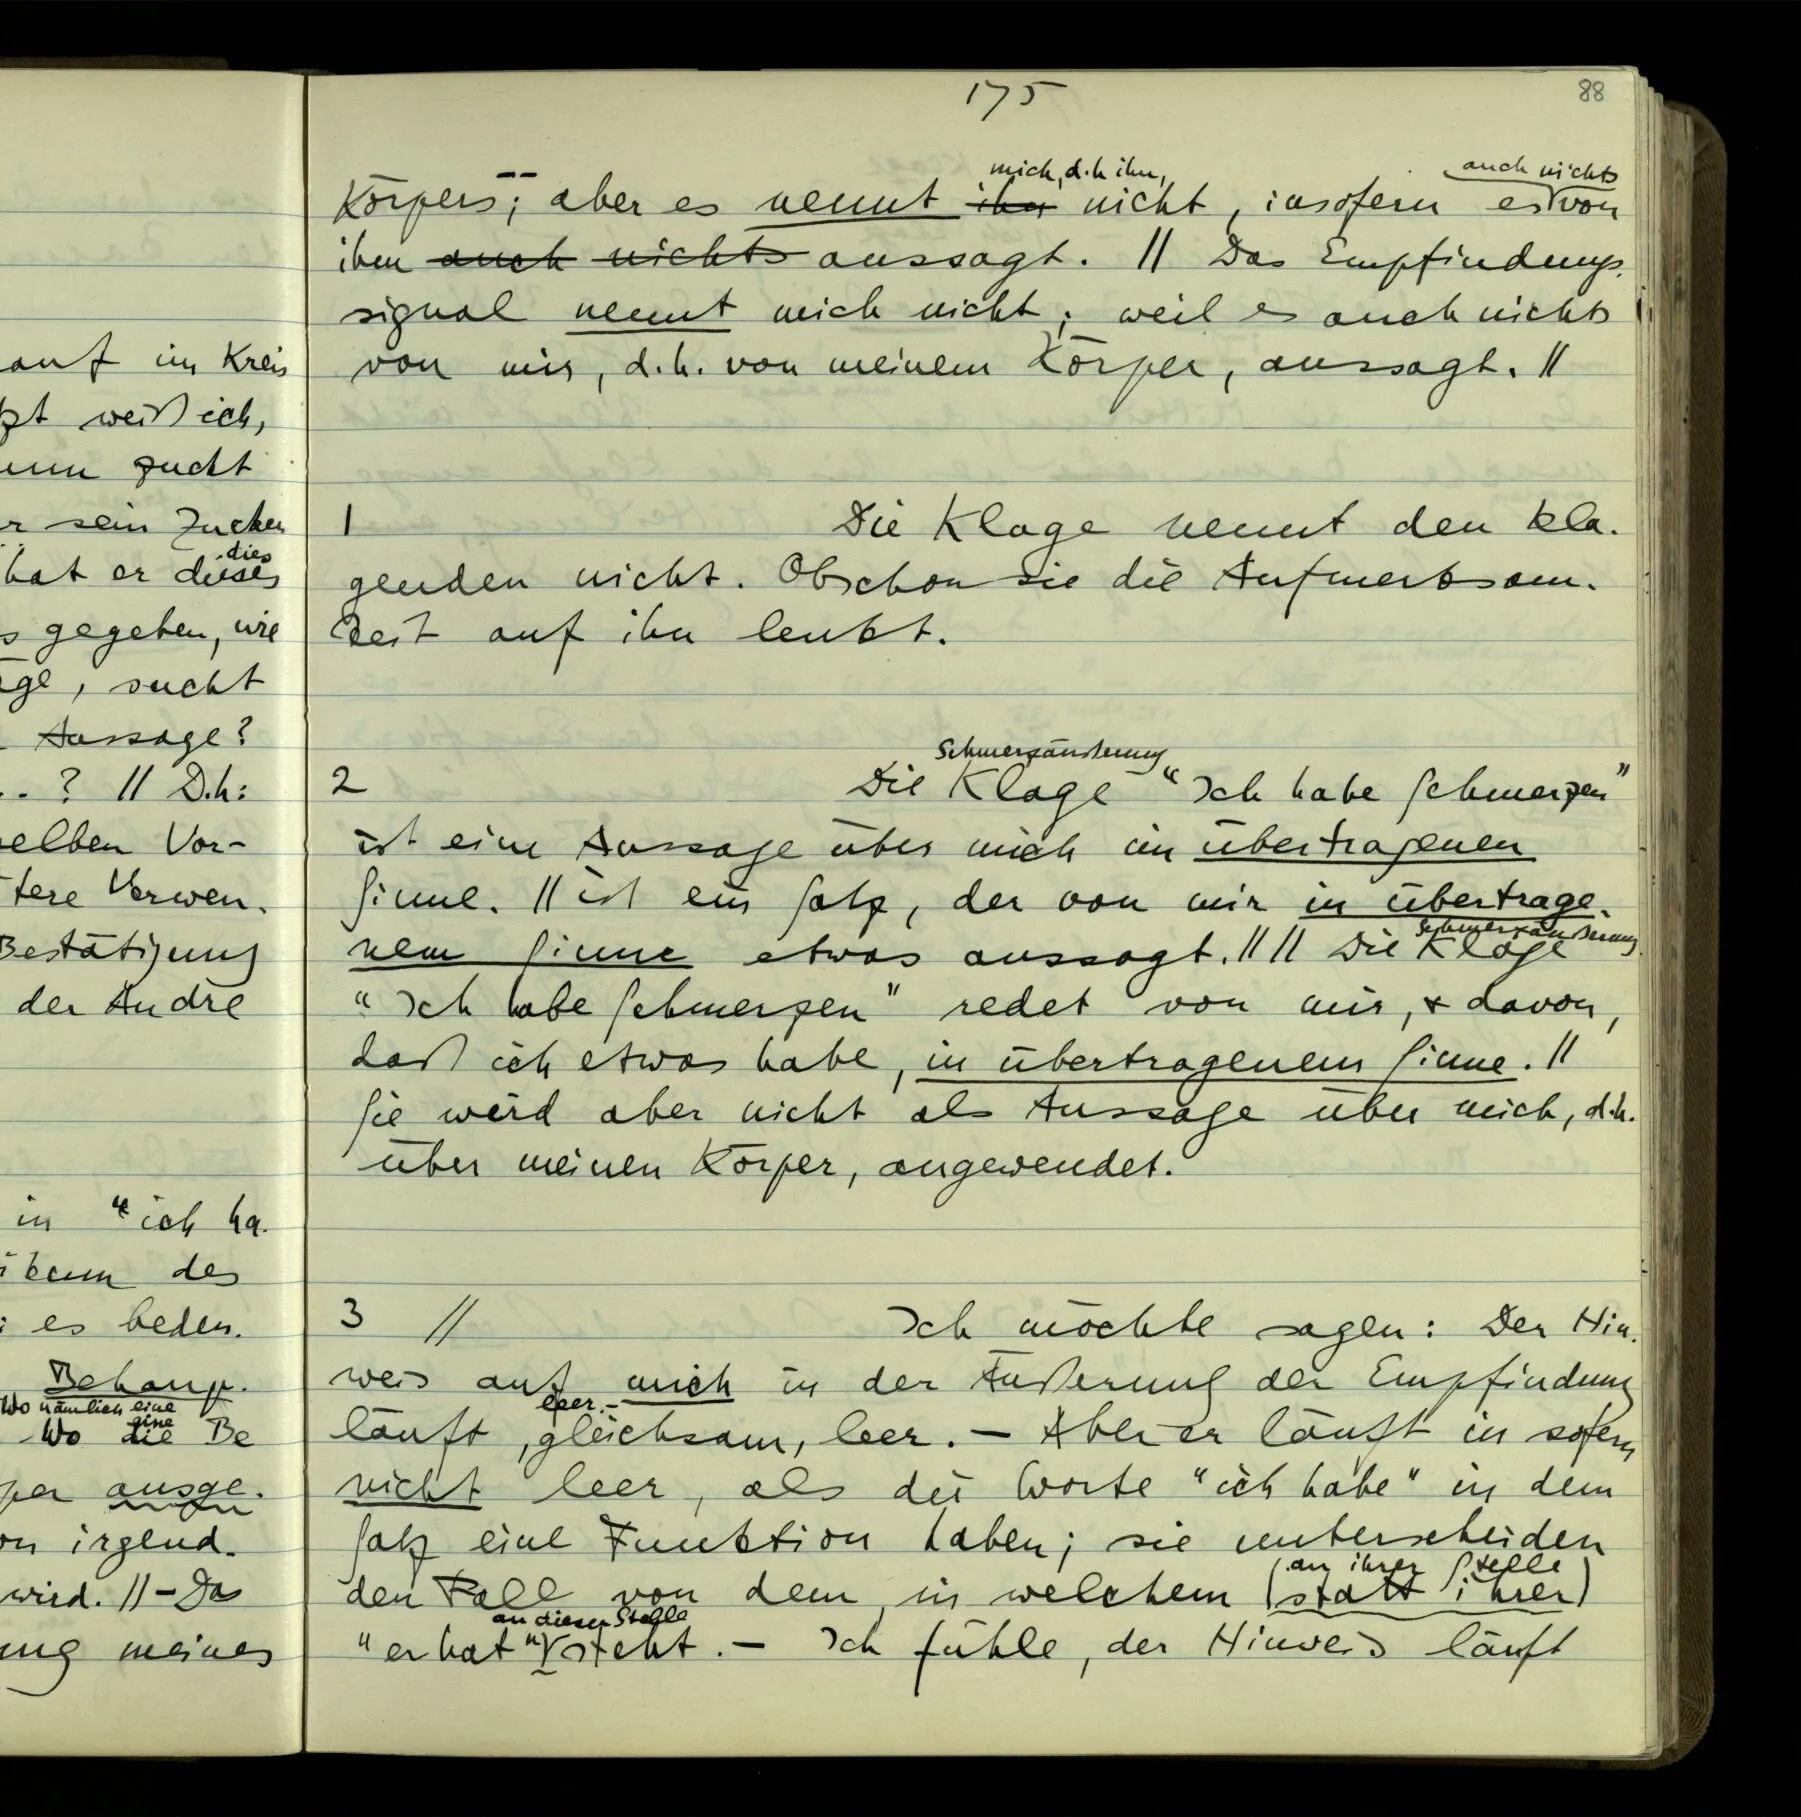 auf im Kreis
weiß ich,
zuckt
sein Zucken
dies
hat er dieses
gegeben, wie
, sucht
Aussage?
..? || D.h:
selben Vor-
tere Verwen-
Bestätigung
der Andre
in "ich ha-
des
es bedeu-
Behaup-
Wo nämlich eine
eine
Wo die Be
ausge-
irgend-
wird. || – Das
meines
175
88
mich, d.h ihn,
auch nichts
Körpers; aber es nennt ihn nicht, insofern es von
ihm auch nichts aussagt. || Das Empfindungs-
signal nennt mich nicht; weil es auch nichts
von mir, d.h. von meinem Körper, aussagt. ||
1 Die Klage nennt den Kla-
genden nicht. Obschon sie die Aufmerksam-
keit auf ihn lenkt.
Schmerzäußerung
2 Die Klage "Ich habe Schmerzen"
ist eine Aussage über mich im übertragenen
Sinne. || ist ein Satz, der von mir in übertrage-
Schmerzäußerung
nem Sinne etwas aussagt. || || Die Klage
"Ich habe Schmerzen" redet von mir, & davon,
daß ich etwas habe, in übertragenem Sinne. ||
Sie wird aber nicht als Aussage über mich, d.h.
über meinen Körper, angewendet.
3 // Ich möchte sagen: Der Hin-
weis auf mich in der Äußerung der Empfindung
leer. –
läuft, gleichsam, leer. – Aber er läuft in sofern
nicht leer, als die Worte "ich habe" in dem
Satz eine Funktion haben; sie unterscheiden
an ihrer Stelle
den Fall von dem, in welchem (statt ihrer)
an dieser Stelle
"er hat" steht. – Ich fühle, der Hinweis läuft